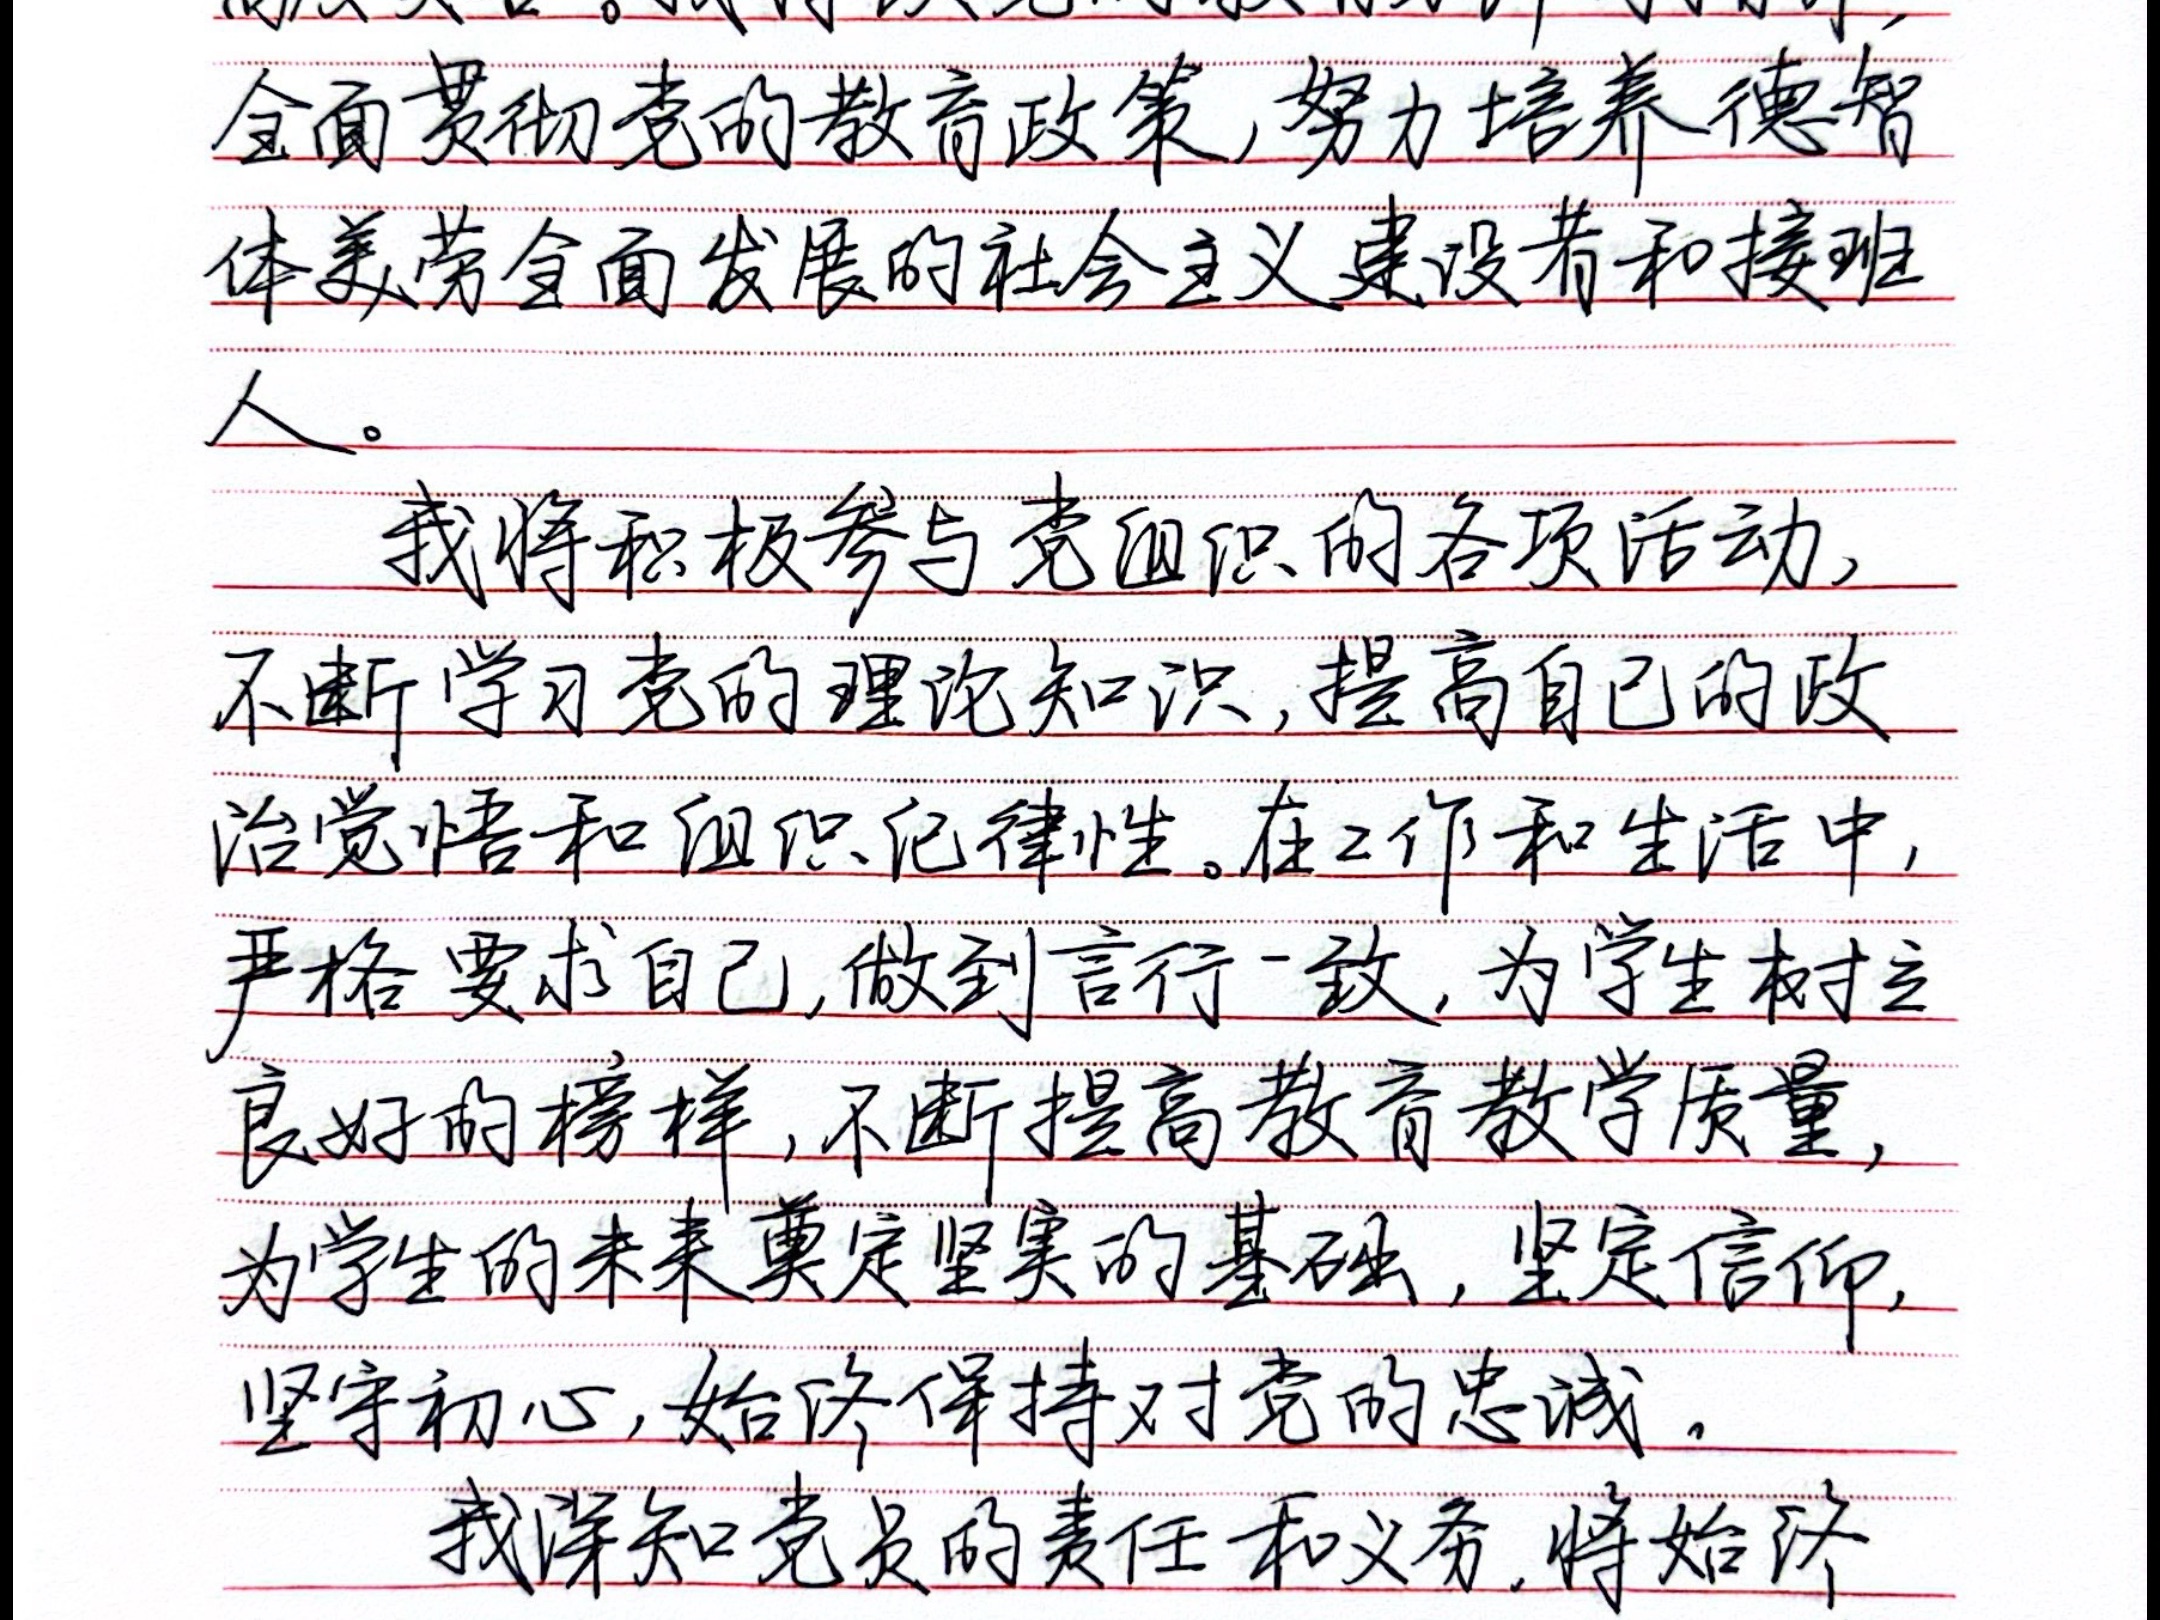 全面贯彻党的教育政策,努力培养德智
体美劳全面发展的社会主义建设者和接班
人。
我将积极参与党组织的各项活动,
不断学习党的理论知识,提高自己的政
治觉悟和组织纪律性。在工作和生活中,
严格要求自己,做到言行一致,为学生树立
良好的榜样,不断提高教育教学质量,
为学生的未来奠定坚实的基础,坚定信仰,
坚守初心,始终保持对党的忠诚。
我深知党员的责任和义务,将始终